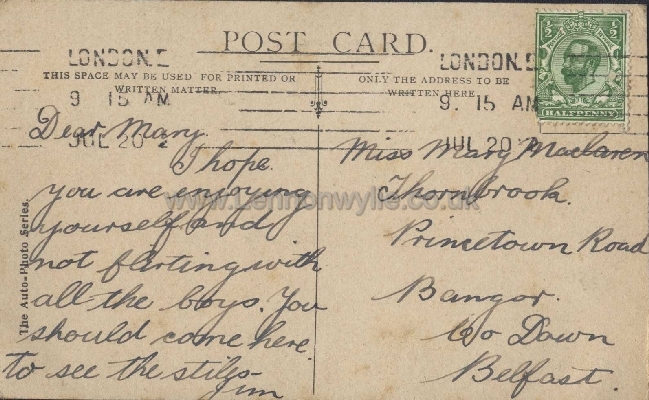 POST CARD.
THIS SPACE MAY BE USED FOR PRINTED OR
WRITTEN MATTER.
ONLY THE ADDRESS TO BE
WRITTEN HERE
LONDON.E
9 15 AM
JUL 20
LONDON.E
9. 15 AM
JUL 20
HALFPENNY
Dear Mary.
I hope.
you are enjoying
yourself and
not flirting with
all the boys. You
should come here.
to see the stiles
Jim
Miss Mary Maclaren
Thornbrook.
Princetown Road
Bangor.
Co Down
Belfast.
The Auto-Photo Series.
www.Lennonwylie.co.uk